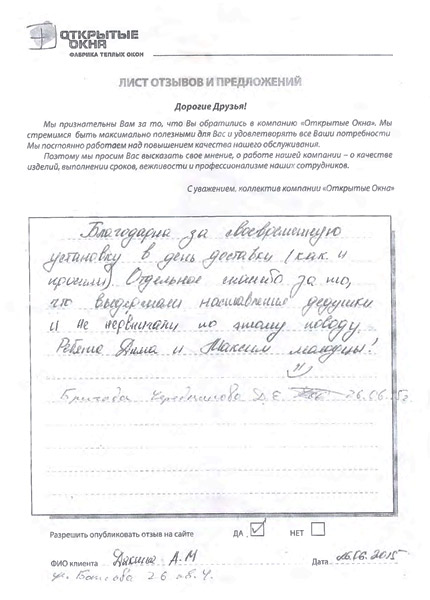 ОТКРЫТЫЕ
ОКНА
ФАБРИКА ТЕПЛЫХ ОКОН
ЛИСТ ОТЗЫВОВ И ПРЕДЛОЖЕНИЙ
Дорогие Друзья!
Мы признательны Вам за то, что Вы обратились в компанию «Открытые Окна». Мы
стремимся быть максимально полезными для Вас и удовлетворять все Ваши потребности
Мы постоянно работаем над повышением качества нашего обслуживания.
Поэтому мы просим Вас высказать свое мнение, о работе нашей компании – о качестве
изделий, выполнении сроков, вежливости и профессионализме наших сотрудников.
С уважением, коллектив компании «Открытые Окна»
Благодарна за своевременную
установку в день доставки (как и
просили) Отдельное спасибо за то,
что выдержали наставление дедушки
и не нервничали по этому поводу.
Ребята Дима и Максим молодцы!
Бригада Д.Е. 26.06.15г
Разрешить опубликовать отзыв на сайте ДА НЕТ
ФИО клиента А.М Дата 26.06.2015
ул. 26 кв.4.